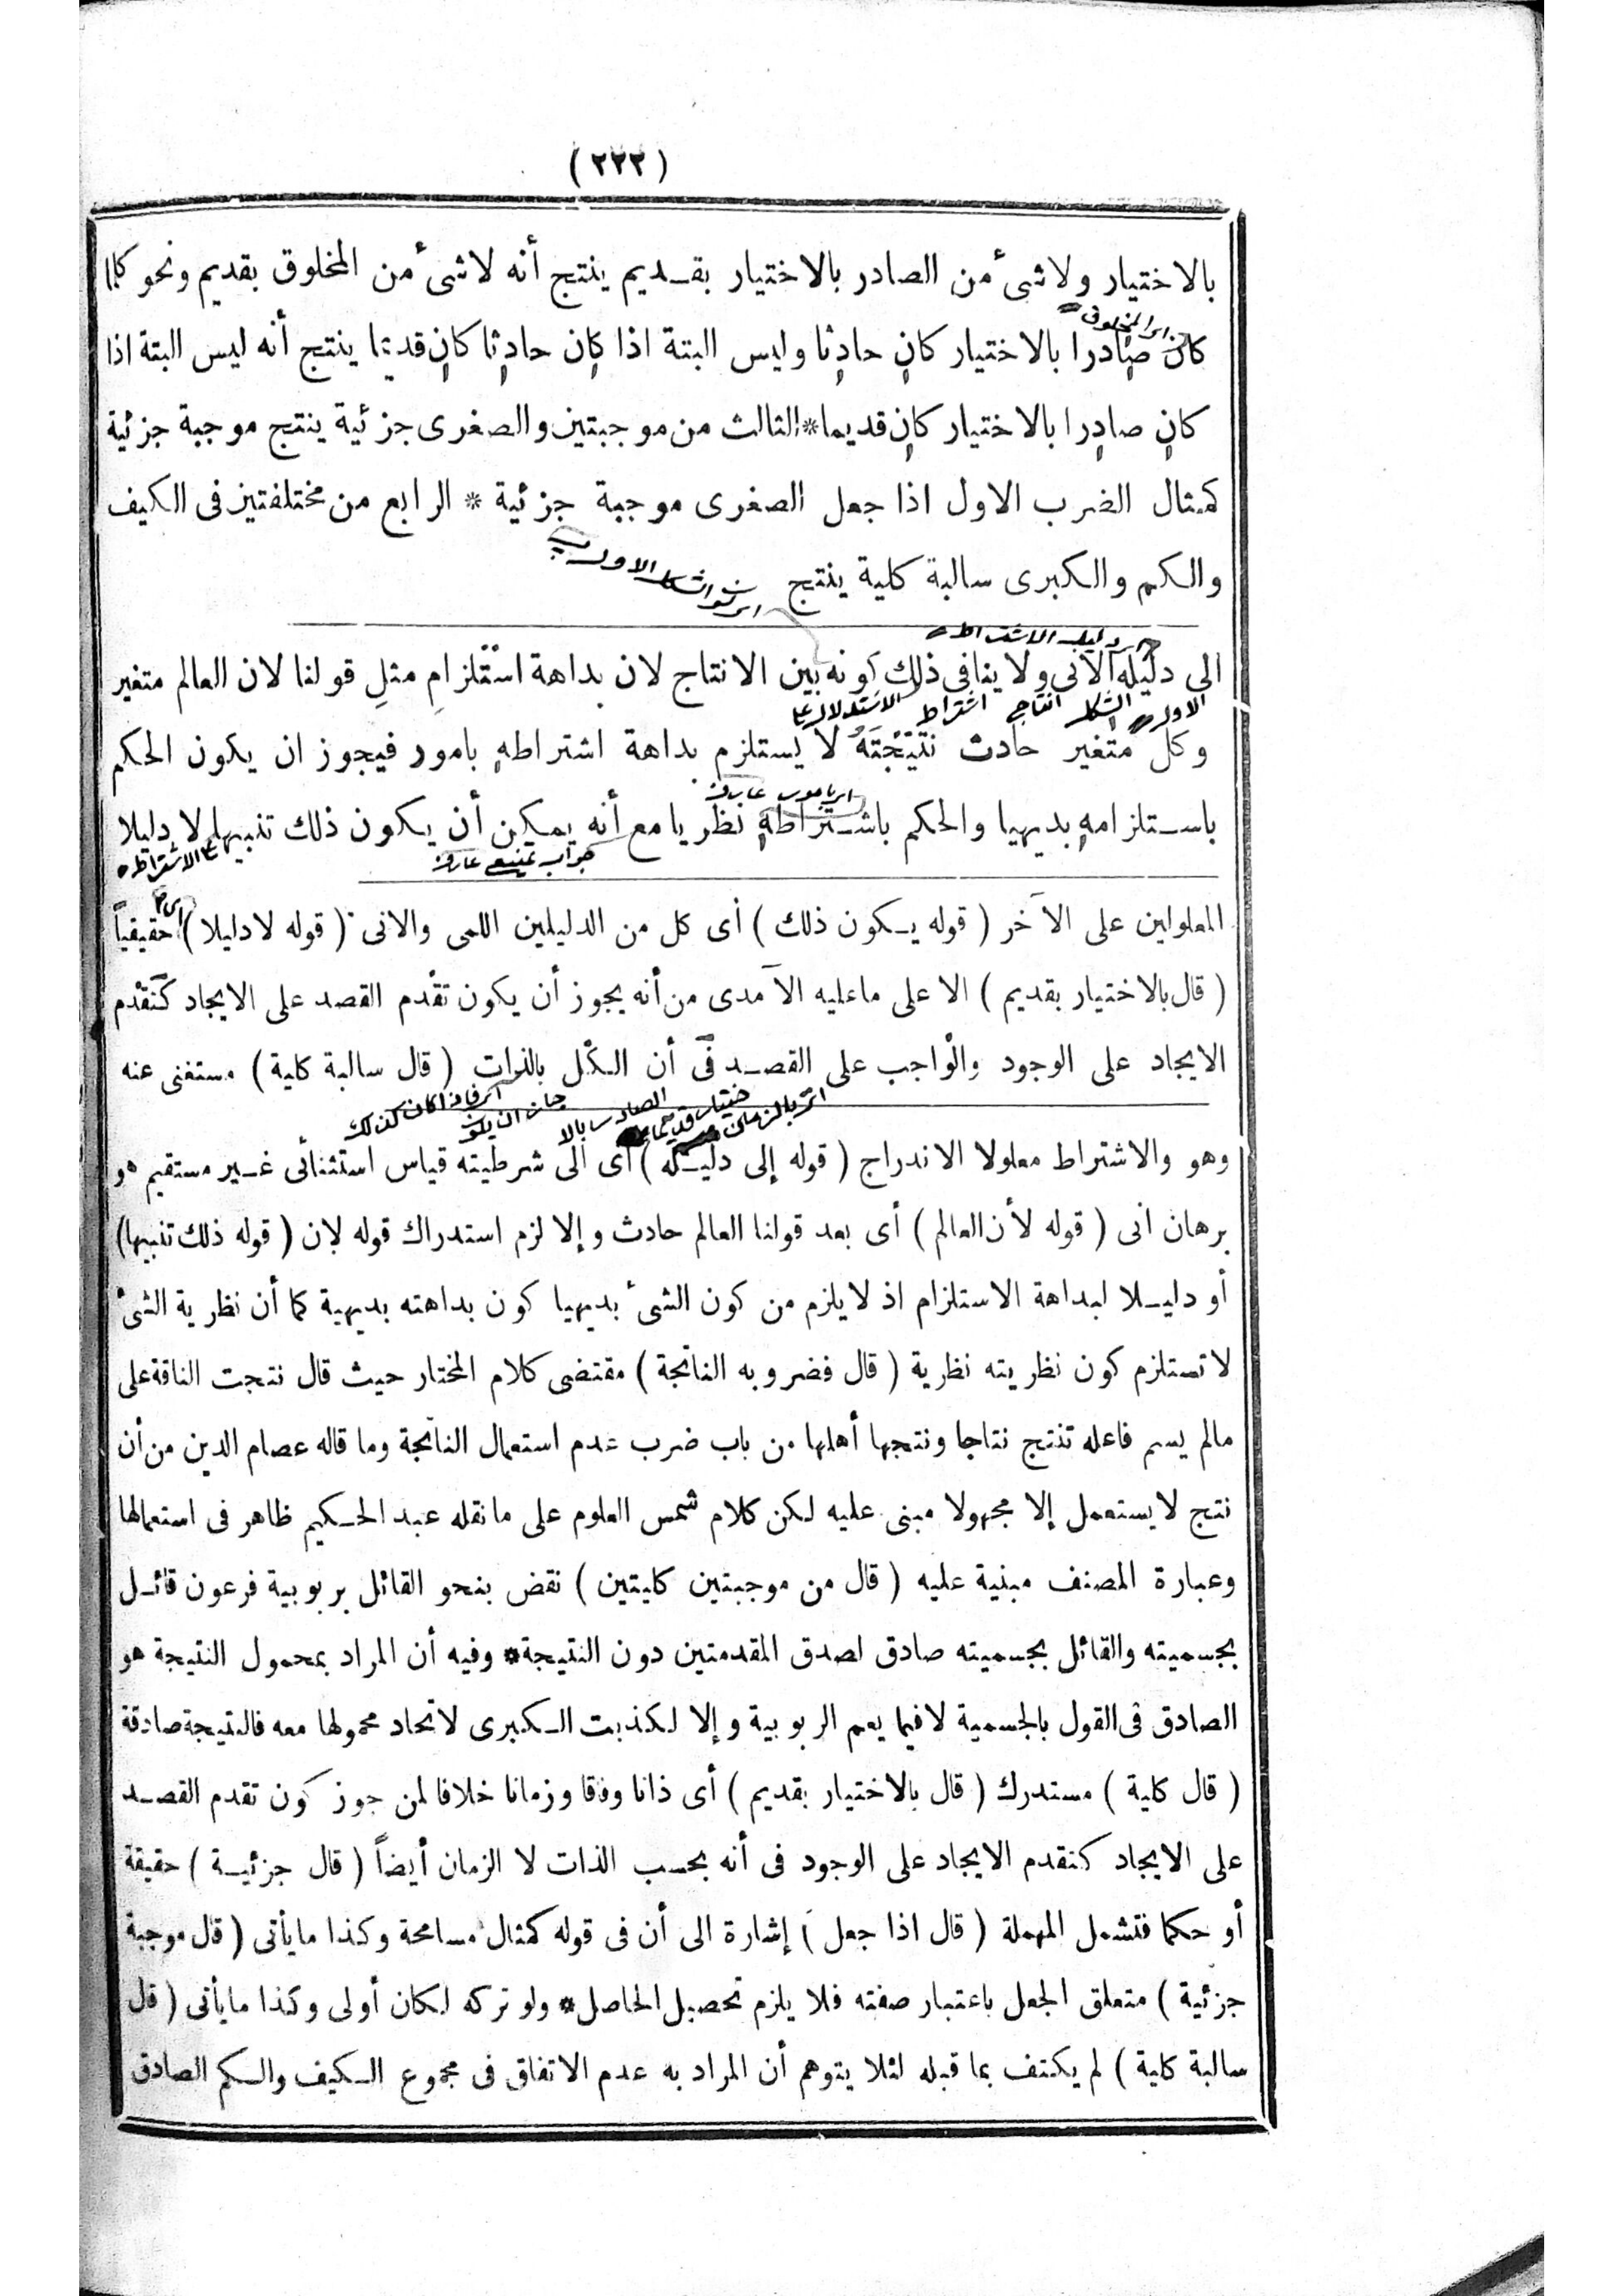 (٢٢٢)
بالاختيار ولاشئ من الصادر بالاختيار بقديم ينتج أنه لاشئ من المخلوق بقديم ونحو كلما
كان صادرا بالاختيار كان حادثا وليس البتة اذا كان حادثا كان قديما ينتج أنه ليس البتة اذا
كان صادرا بالاختيار كان قديما * الثالث من موجبتين والصغرى جزئية ينتج موجبة جزئية
كمثال الضرب الاول اذا جعل الصغرى موجبة جزئية * الرابع من مختلفتين فى الكيف
والكم والكبرى سالبة كلية ينتج
دليل الاشتراط
الى دليله الآنى ولا ينافى ذلك كونه بين الانتاج لان بداهة استلزام مثل قولنا لان العالم متغير
الاول الشكل انتاج اشتراط الاستدلال
وكل متغير حادث نتيجته لا يستلزم بداهة اشتراطه بامور فيجوز ان يكون الحكم
باستلزامه بديهيا والحكم باشتراطه نظريا مع أنه يمكن أن يكون ذلك تنبيها لا دليلا
المعلولين على الآخر ( قوله يكون ذلك ) أى كل من الدليلين اللمى والانى ( قوله لا دليلا ) حقيقياً
( قال بالاختيار بقديم ) الا على ماعليه الآمدى من أنه يجوز أن يكون تقدم القصد على الايجاد كتقدم
الايجاد على الوجود والواجب على القصد فى أن الكل بالذات ( قال سالبة كلية ) مستغنى عنه
وهو والاشتراط معلولا الاندراج ( قوله إلى دليله ) أى الى شرطيته قياس استثنائى غير مستقيم هو
برهان انى ( قوله لأن العالم ) أى بعد قولنا العالم حادث وإلا لزم استدراك قوله لان ( قوله ذلك تنبيها )
أو دليلا لبداهة الاستلزام اذ لا يلزم من كون الشئ بديهيا كون بداهته بديهية كما أن نظرية الشئ
لا تستلزم كون نظريته نظرية ( قال فضروبه الناتجة ) مقتضى كلام المختار حيث قال نتجت الناقة على
مالم يسم فاعله تنتج نتاجا ونتجها أهلها من باب ضرب عدم استعمال الناتجة وما قاله عصام الدين من أن
نتج لا يستعمل إلا مجهولا مبنى عليه لكن كلام شمس العلوم على مانقله عبد الحكيم ظاهر فى استعمالها
وعبارة المصنف مبنية عليه ( قال من موجبتين كليتين ) نقض بنحو القائل بربوبية فرعون قائل
بجسميته والقائل بجسميته صادق لصدق المقدمتين دون النتيجة * وفيه أن المراد بمحمول النتيجة هو
الصادق فى القول بالجسمية لا فيما يعم الربوبية وإلا لكذبت الكبرى لاتحاد محمولها معه فالنتيجة صادقة
( قال كلية ) مستدرك ( قال بالاختيار بقديم ) أى ذاتا وفقا وزمانا خلافا لمن جوز كون تقدم القصد
على الايجاد كتقدم الايجاد على الوجود فى أنه بحسب الذات لا الزمان أيضاً ( قال جزئية ) حقيقة
أو حكما فتشمل المهملة ( قال اذا جعل ) إشارة الى أن فى قوله كمثال مسامحة وكذا مايأتى ( قال موجبة
جزئية ) متعلق الجعل باعتبار صفته فلا يلزم تحصيل الحاصل * ولو تركه لكان أولى وكذا مايأتى ( قال
سالبة كلية ) لم يكتف بما قبله لئلا يتوهم أن المراد به عدم الاتفاق فى مجموع الكيف والكم الصادق